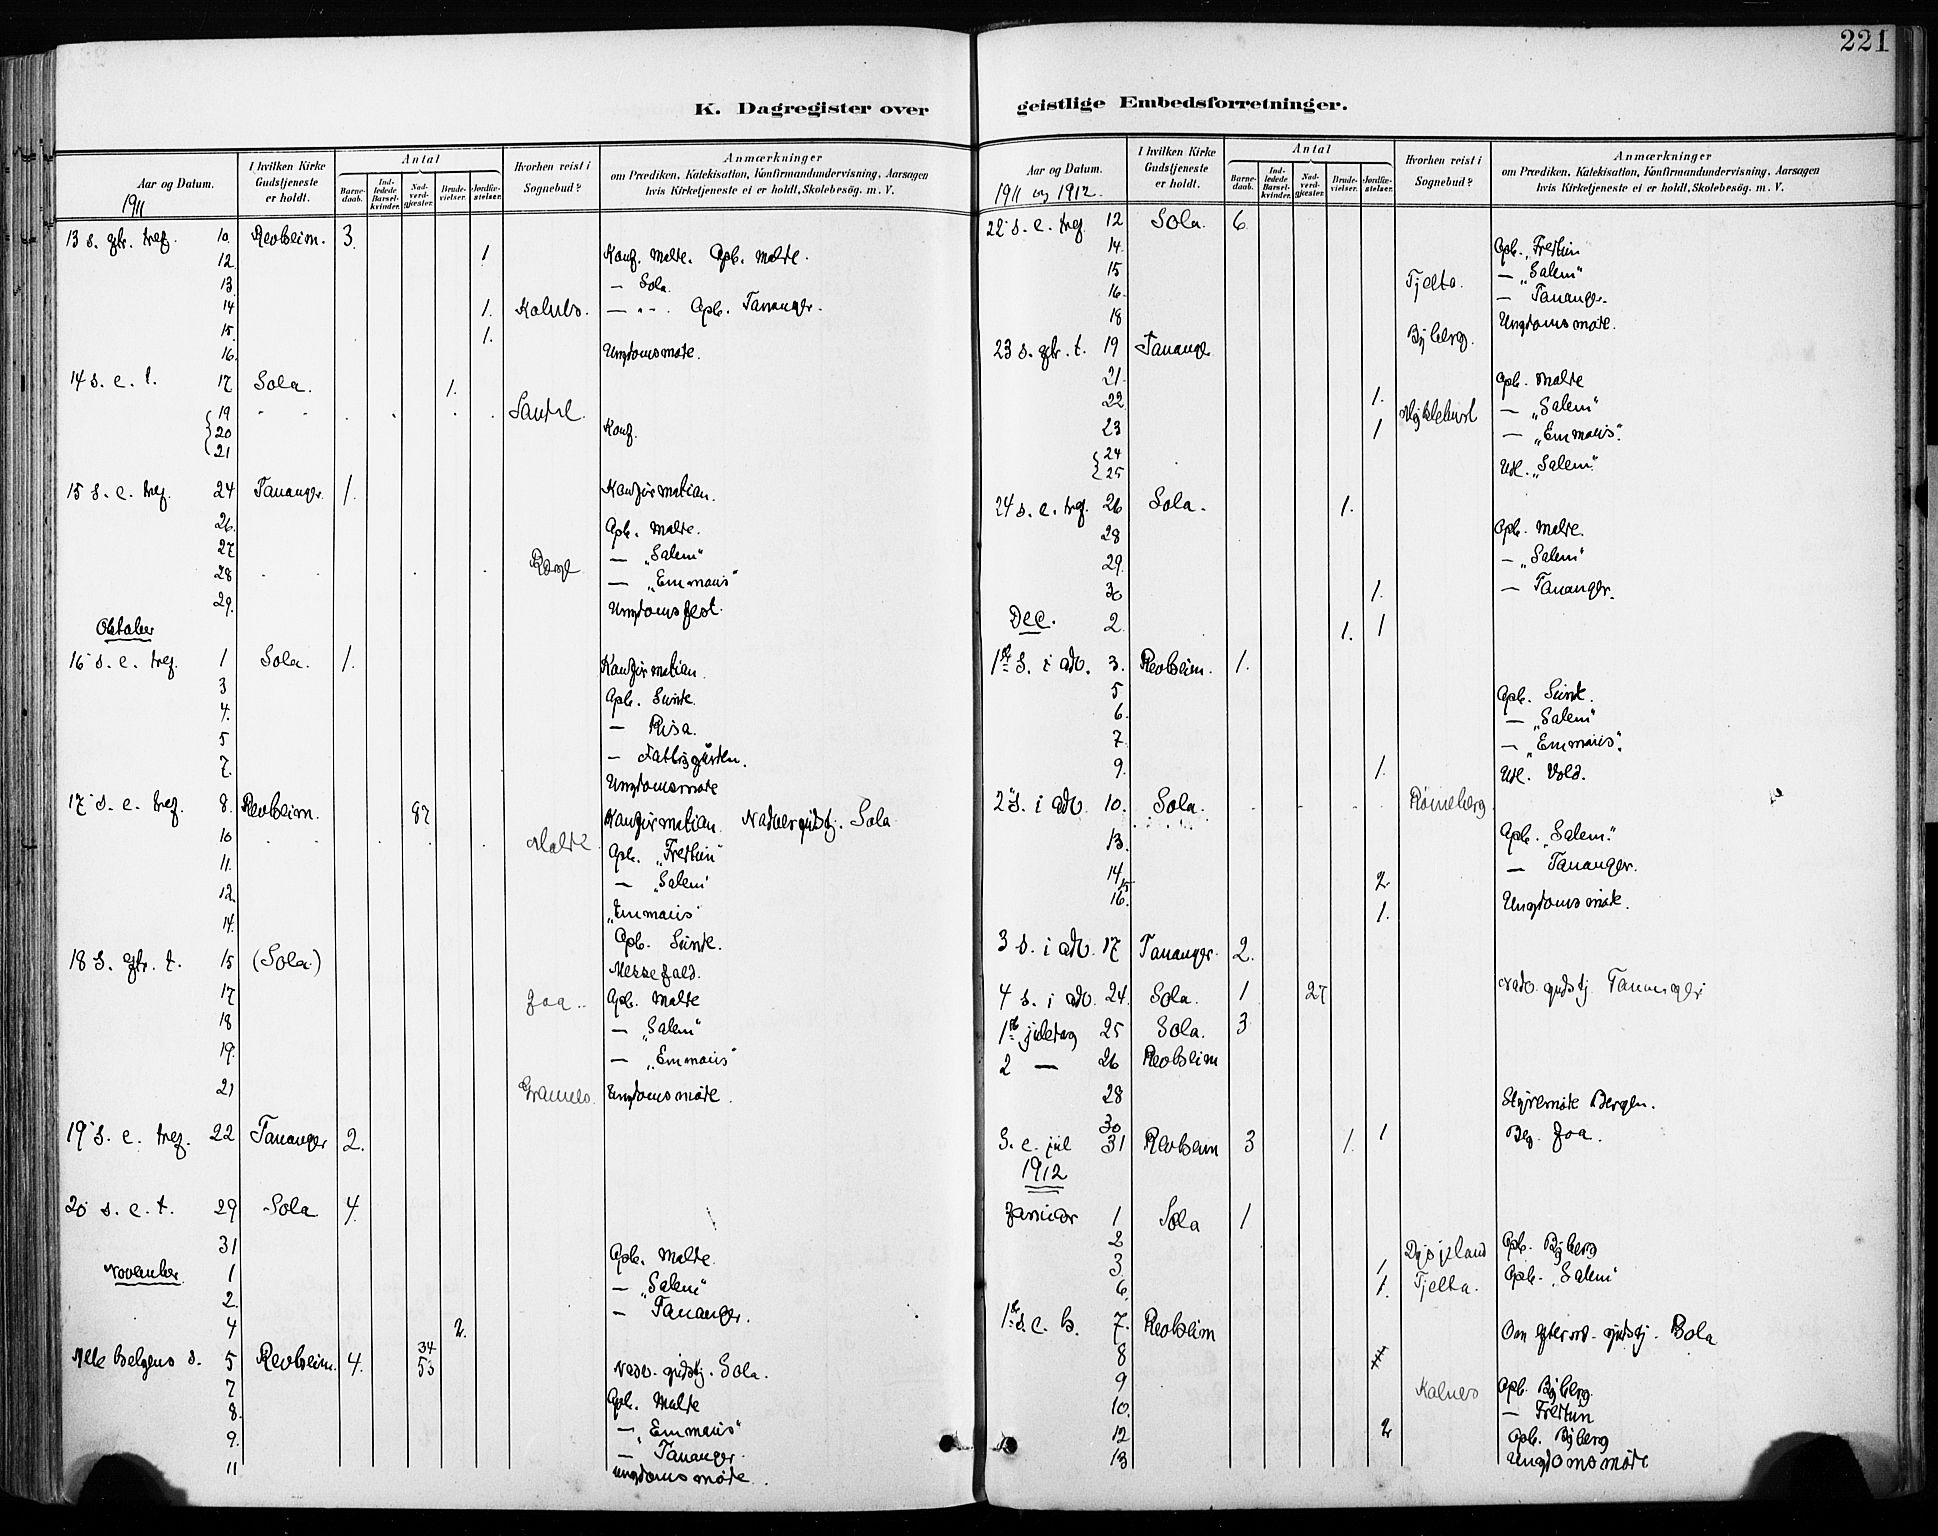 221
K. Dagregister over
geistlige Embedsforretninger.
Aar og Datum.
I hvilken Kirke Gudstjeneste er holdt.
Antal
Barnedaab.
Indledede Barselkvinder.
Nadverdgjester.
Brudevielser.
Jordfæstelser.
Hvorhen reist i Sognebud?
Anmærkninger
om Prædiken, Katekisation, Konfirmandundervisning, Aarsagen
hvis Kirketjeneste ei er holdt, Skolebesøg. m. V.
1911
13 s. eftr. tref. 10. Revheim. 3.
12. 1 Konf. Malde. Opb. Malde.
13. — Sola.
14 1. Kolnes. — " - . Opb. Tananger.
15. 1.
16. Ungdomsmøte.
14 s. e. t. 17 Sola. 1.
19 Sande.
20 Konf.
21
15 s. e. tref. 24 Tananger. 1. Konfirmation.
26. Opb. Malde.
27 — „Salem"
28 — „Emmaus"
29. Ungdomsfest.
Oktober
16 s. e. tref. 1 Sola. 1. Konfirmation.
3 Opb. Sunde.
4. — Risa.
5 — Fattiggården.
7. Ungdomsmøte
17 s. e. tref. 8. Revheim. 87 Konfirmation. Nadvergudstj. Sola
10 Malde. Opb. „Fredtun"
11. — „Salem"
12. „Emmaus"
14. Opb. Sunde.
18 s. eftr. t. 15 (Sola) Messefald.
17 Joa. Opb. Malde
18 — „Salem"
19. — „Emmaus"
21 Grannes. Ungdomsmøte.
19 s. e. tref. 22 Tananger 2.
20 s. e. t. 29 Sola 4.
31 Opb. Malde.
November 1 — „Salem"
2. — Tananger.
4 2.
Alle helgens s. 5 Revheim. 4. 34 53 Nadv. gudstj. Sola.
7 Opb. Malde
8. — „Emmaus"
9. — Tananger.
11 Ungdomsmøte.
Aar og Datum.
I hvilken Kirke Gudstjeneste er holdt.
Antal
Barnedaab.
Indledede Barselkvinder.
Nadverdgjester.
Brudevielser.
Jordfæstelser.
Hvorhen reist i Sognebud?
Anmærkninger
om Prædiken, Katekisation, Konfirmandundervisning, Aarsagen
hvis Kirketjeneste ei er holdt, Skolebesøg. m. V.
1911 og 1912.
22 s. e. tref. 12 Sola. 6.
14. Opb. „Fredtun
15 — „Salem"
16. Tjelta. — Tananger.
18 Ungdomsmøte.
23 s. eftr. t. 19 Tananger Byberg.
21. Opb. Malde
22 1. Myklebust — „Salem"
23 1 — „Emmaus".
24 Utd. „Salem"
25
24 s. e. tref. 26 Sola. 1.
28 Opb. Malde.
29. — „Salem"
30 1. — Tananger.
Dec. 2. 1. 1
1ste s. i adv. 3. Revheim. 1.
5 Opb. Sunde.
6. — „Salem"
7. — „Emmaus".
9. 1. Utd. Vold.
2 s. i adv. 10. Sola. Røineberg.
13. Opb. „Salem".
14 2 — Tananger.
15
16. 1. Ungdomsmøte.
3 s. i adv. 17 Tananger. 2.
4 s. i adv. 24. Sola. 1 27 Nadv. gudstj. Tananger
1ste juledag 25 Sola. 3
2 — 26 Revheim
28 Styremøte Bergen.
30 1
S. e. jul 31 Revheim 3 1. Beg. Joa.
1912
Januar 1 Sola 1
2 Dysjeland Opb. Byberg
3. 1. Opb. „Salem"
6. 1. Tjelta.
1ste s. e. h. 7. Revheim Om efterm. gudstj. Sola
8
9 Kolnes Opb. Byberg.
10. — Fredtun
12 2 Opb. Byberg
13 Ungdomsmøte